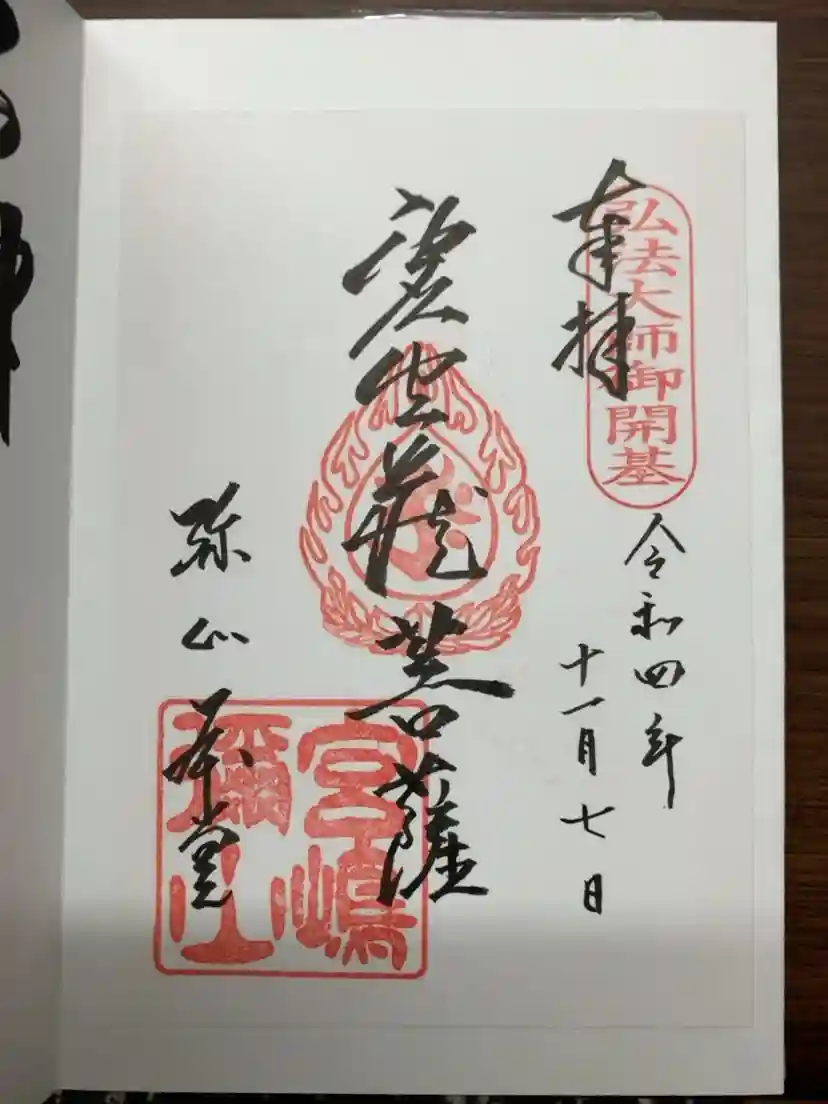 奉拝
弘法大師御開基
令和四年
十一月七日
虚空蔵菩薩
弥山本堂
宮嶋
彌山